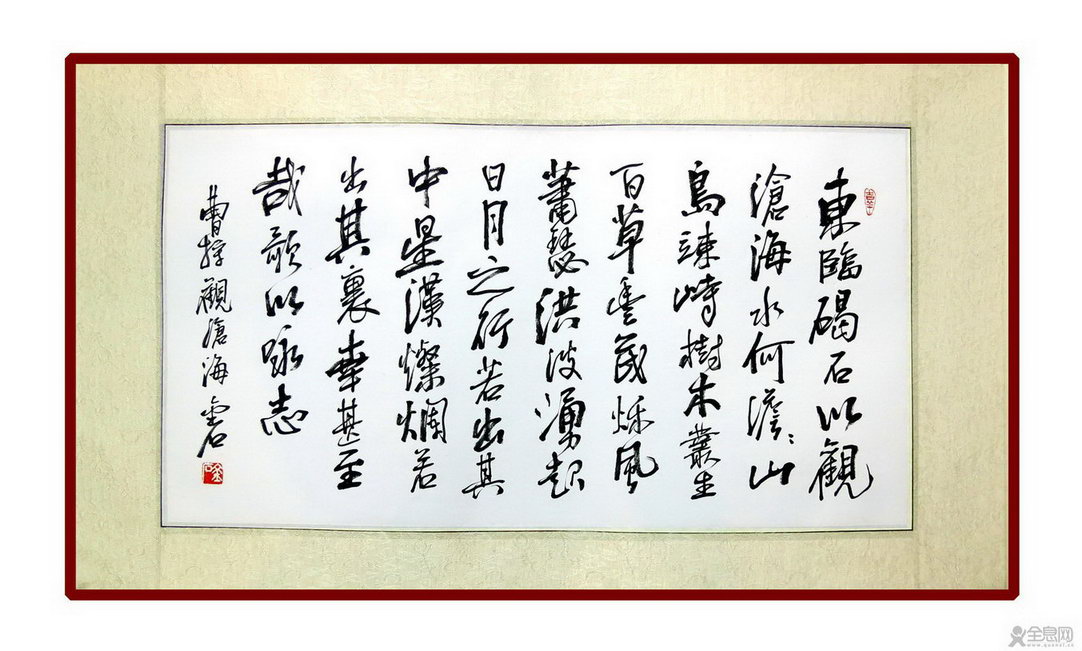 東臨碣石以觀
滄海水何澹々山
島竦峙樹木叢生
百草豐茂秋風
蕭瑟洪波湧起
日月之行若出其
中星漢燦爛若
出其裏幸甚至
哉歌以詠志
曹操觀滄海
全息网